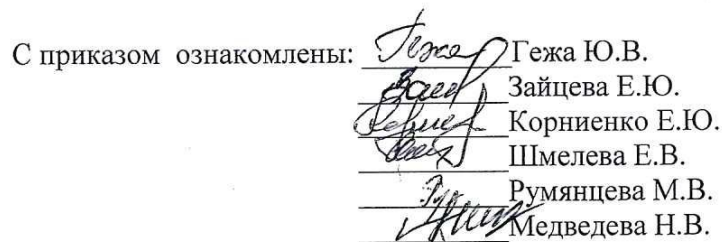 С приказом ознакомлены: Гежа Ю.В.
Зайцева Е.Ю.
Корниенко Е.Ю.
Шмелева Е.В.
Румянцева М.В.
Медведева Н.В.